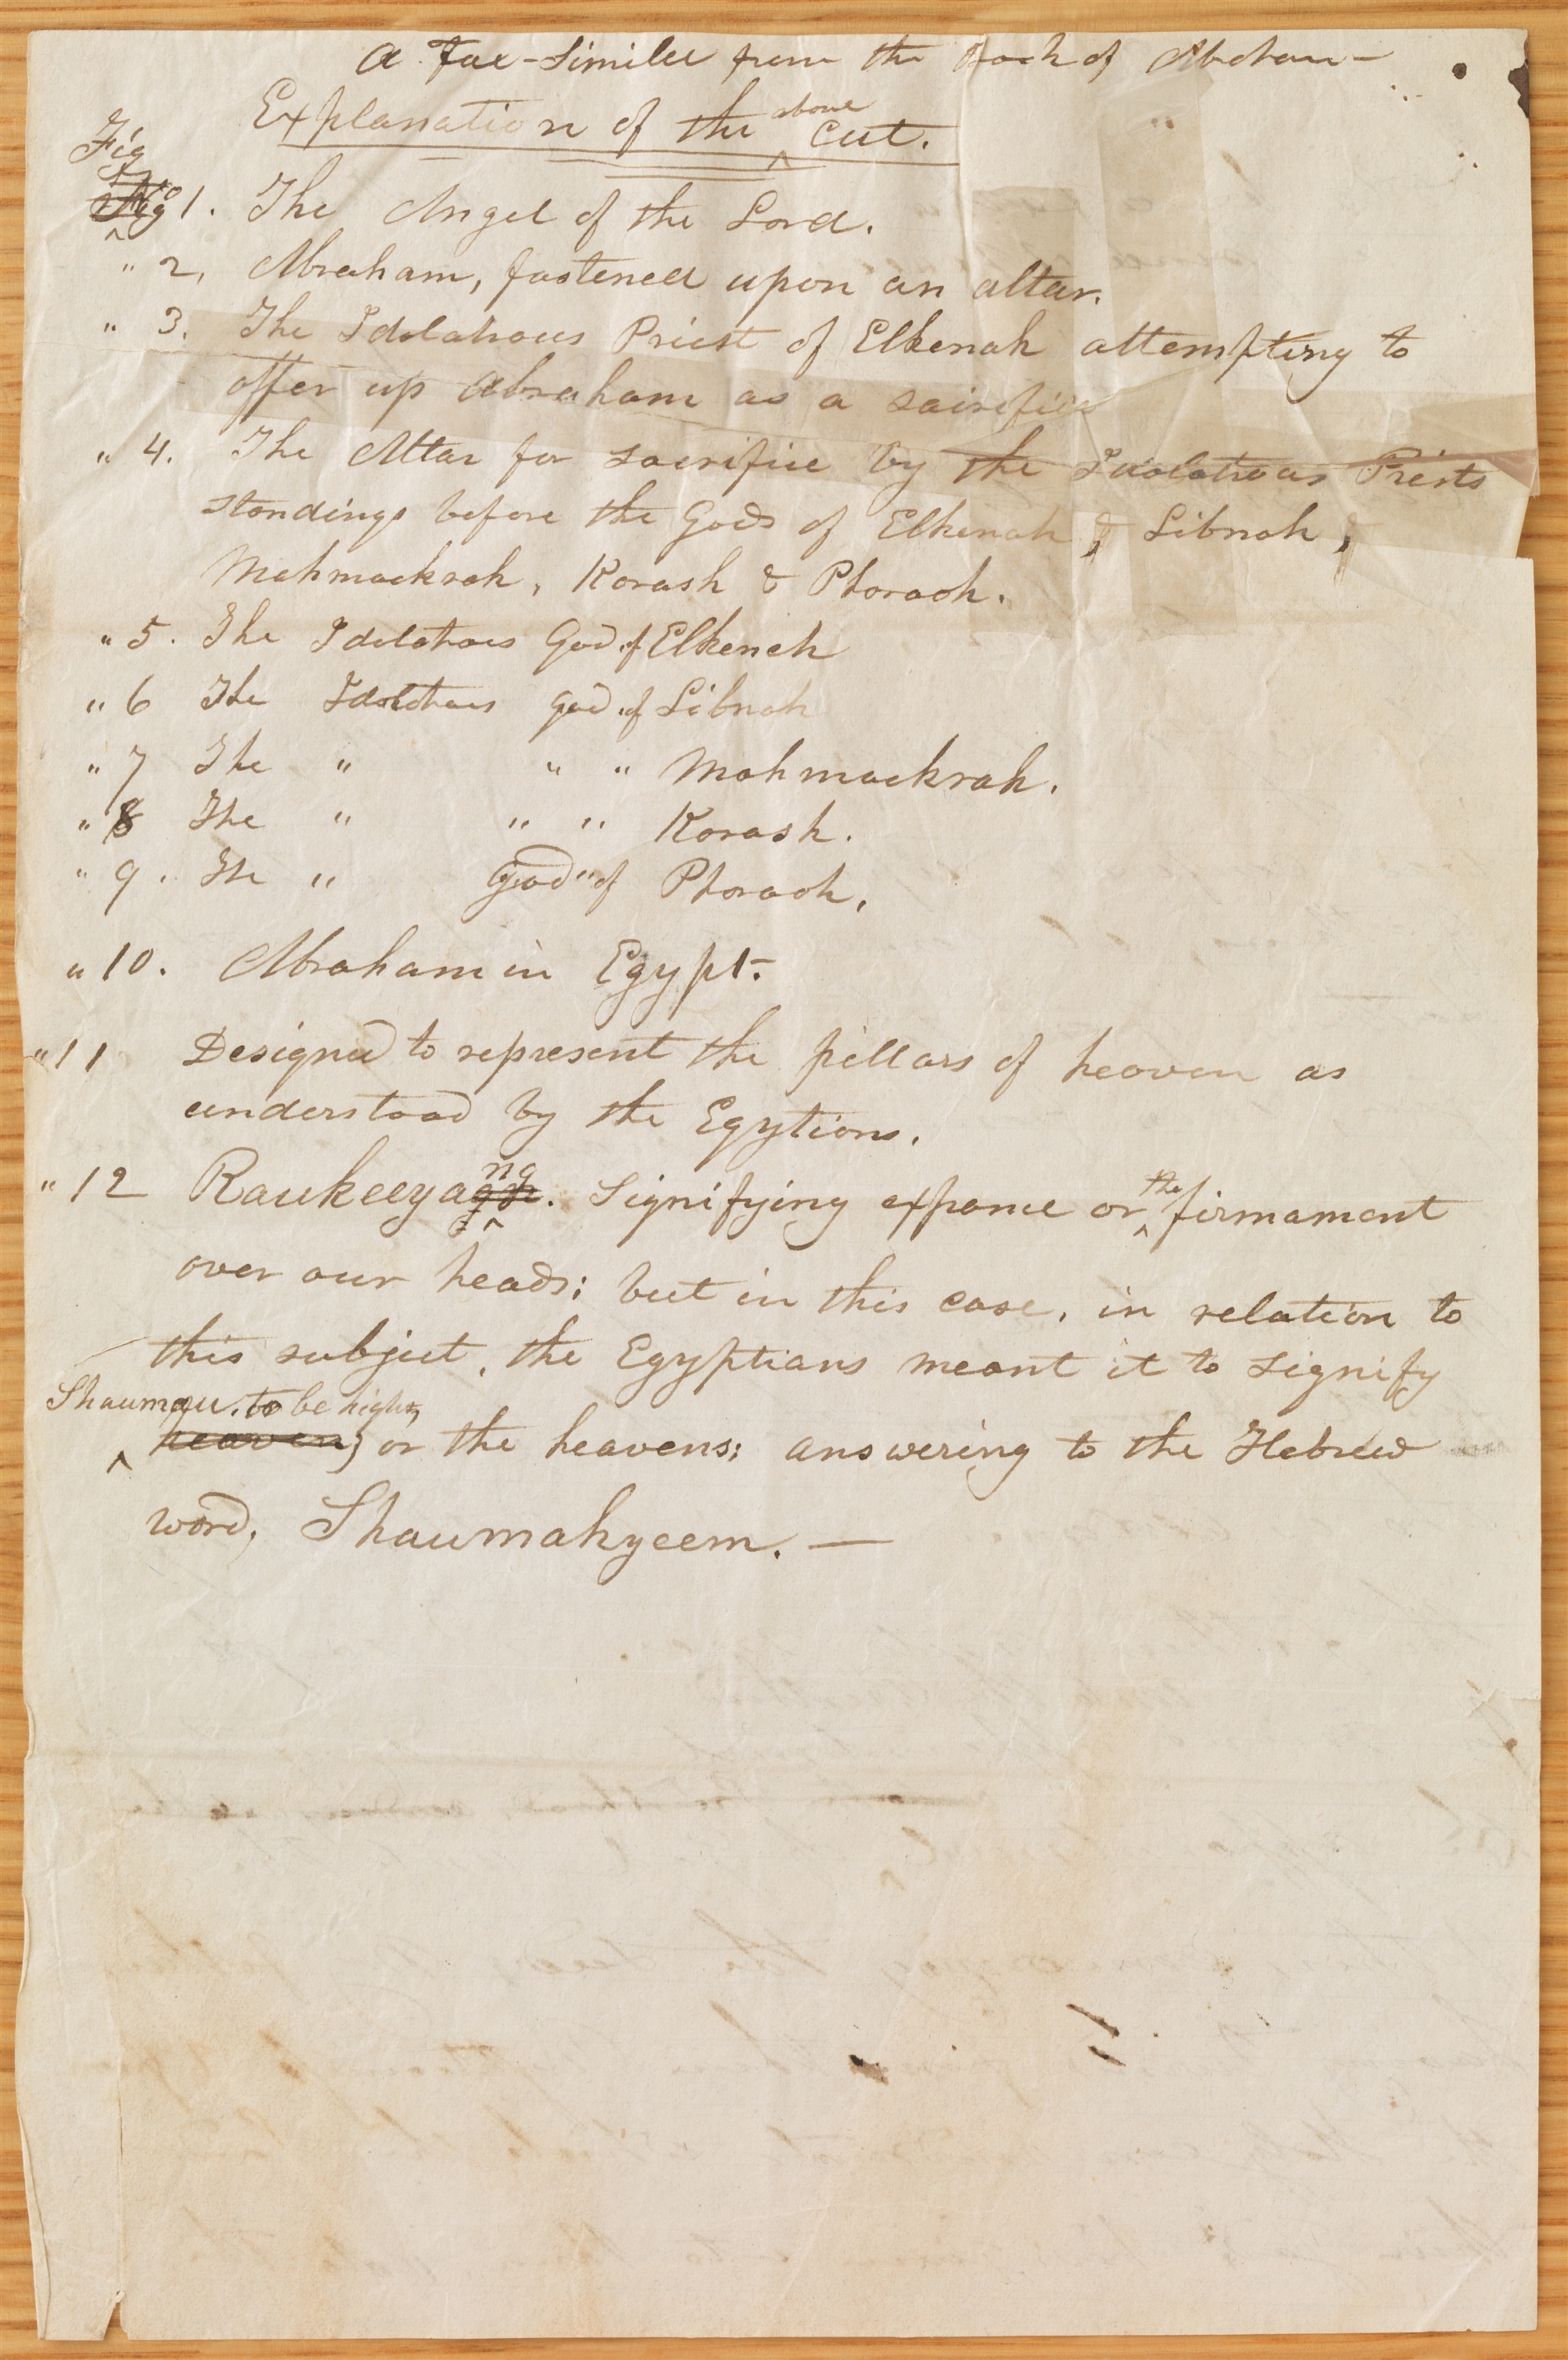 A Fac-Similee from the Book of Abraham —
Explanation of the above cut.
Fig
No
Fig 1. The Angel of the Lord.
" 2, Abraham, fastened upon an altar.
" 3. The Idolatrous Priest of Elkenah attempting to
offer up Abraham as a sacrifice
" 4. The Altar for sacrifice by the Idolatrous Priests
standing before the Gods of Elkenah, & Libnah, &
Mahmackrah, Korash & Pharaoh.
" 5. The Idolatrous God of Elkenah
" 6 The Idolatrous god of Libnah
" 7 The " " " Mahmackrah.
" 8 The " " " Korash.
" 9. The " God " of Pharaoh,
" 10. Abraham in Egypt.
" 11 Designed to represent the pillars of heaven as
understood by the Egytians.
" 12 Raukeeyang. Signifying expance or the firmament
over our heads; but in this case, in relation to
this subject, the Egyptians meant it to signify
Shaumau, to be high,
heaven, or the heavens: answering to the Hebrew
word, Shaumahyeem. —